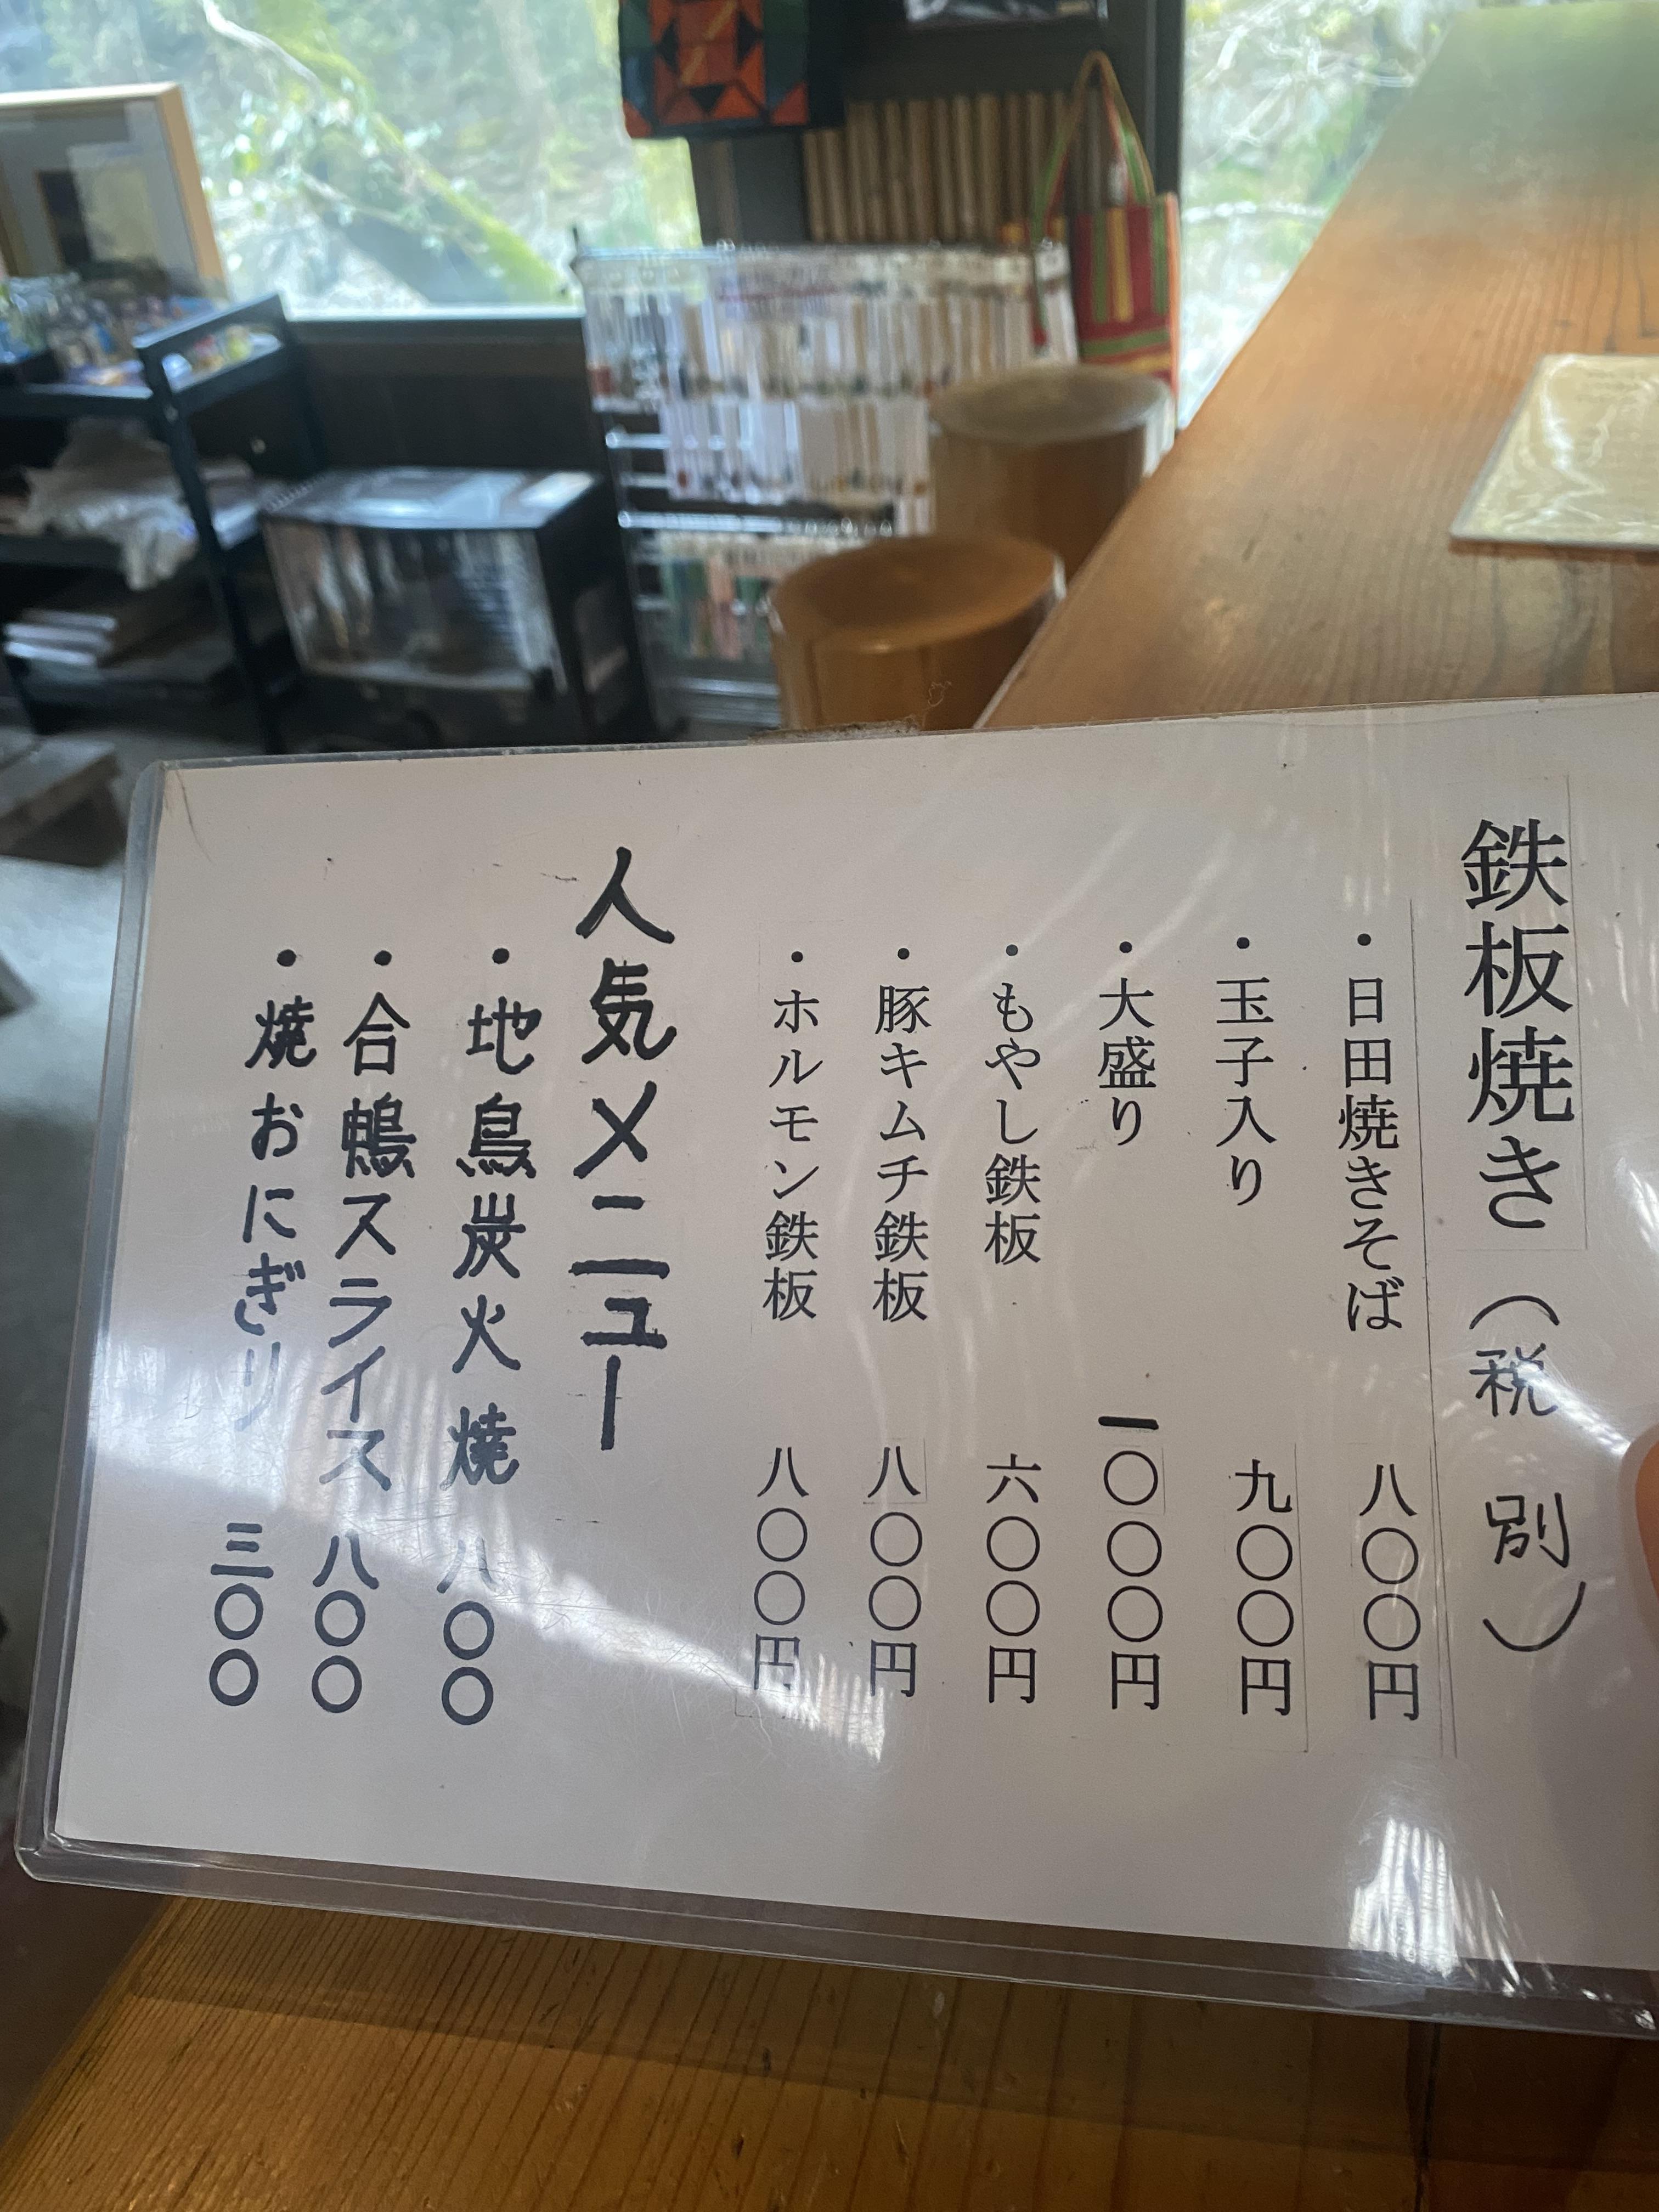 鉄板焼き（税別）
・日田焼きそば 八〇〇円
・玉子入り 九〇〇円
・大盛り 一〇〇〇円
・もやし鉄板 六〇〇円
・豚キムチ鉄板 八〇〇円
・ホルモン鉄板 八〇〇円
人気メニュー
・地鳥炭火焼 八〇〇
・合鴨スライス 八〇〇
・焼おにぎり 三〇〇